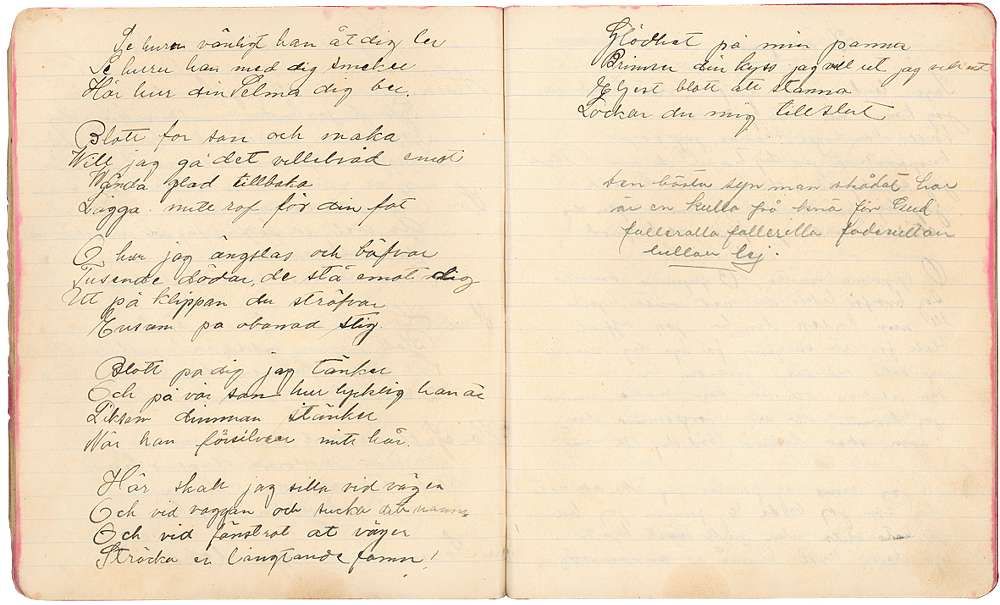 Se huru vänligt han åt dig ler
Se huru han med dig smeker
Hör hur din Selma dig ber.
Blott för son och maka
Will jag gå det villebråd emot
Wända glad tillbaka
Lägga mitt rof för din fot
O hur jag ängslas och bäfvar
Tusende dödar de stå emot dig
Ut på klippan du sträfvar
Ensam på obanad stig
Blott på dig jag tänker
Och på vår son hur lycklig han är
Liksom dimman stänker
När han försilvrar mitt hår.
Här skall jag sitta vid vägen
Och vid vaggan och sucka ditt namn
Och vid fönstret at vägen
Sträcka en längtande famn!
Glödhet på min panna
Brinner din kyss jag vill ut jag vill ut
Ej blott att stanna
Lockar du mig till slut
den bästa syn man skådat har
är en kulla på knä för Gud
falleralla fallerilla
lej.